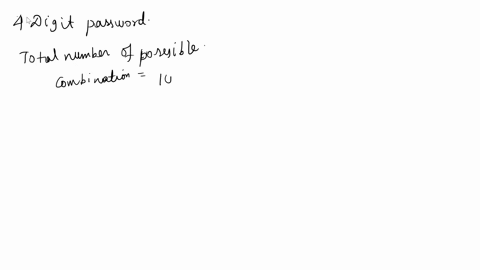 4 Digit password.
Total number of possible.
Combination = 10